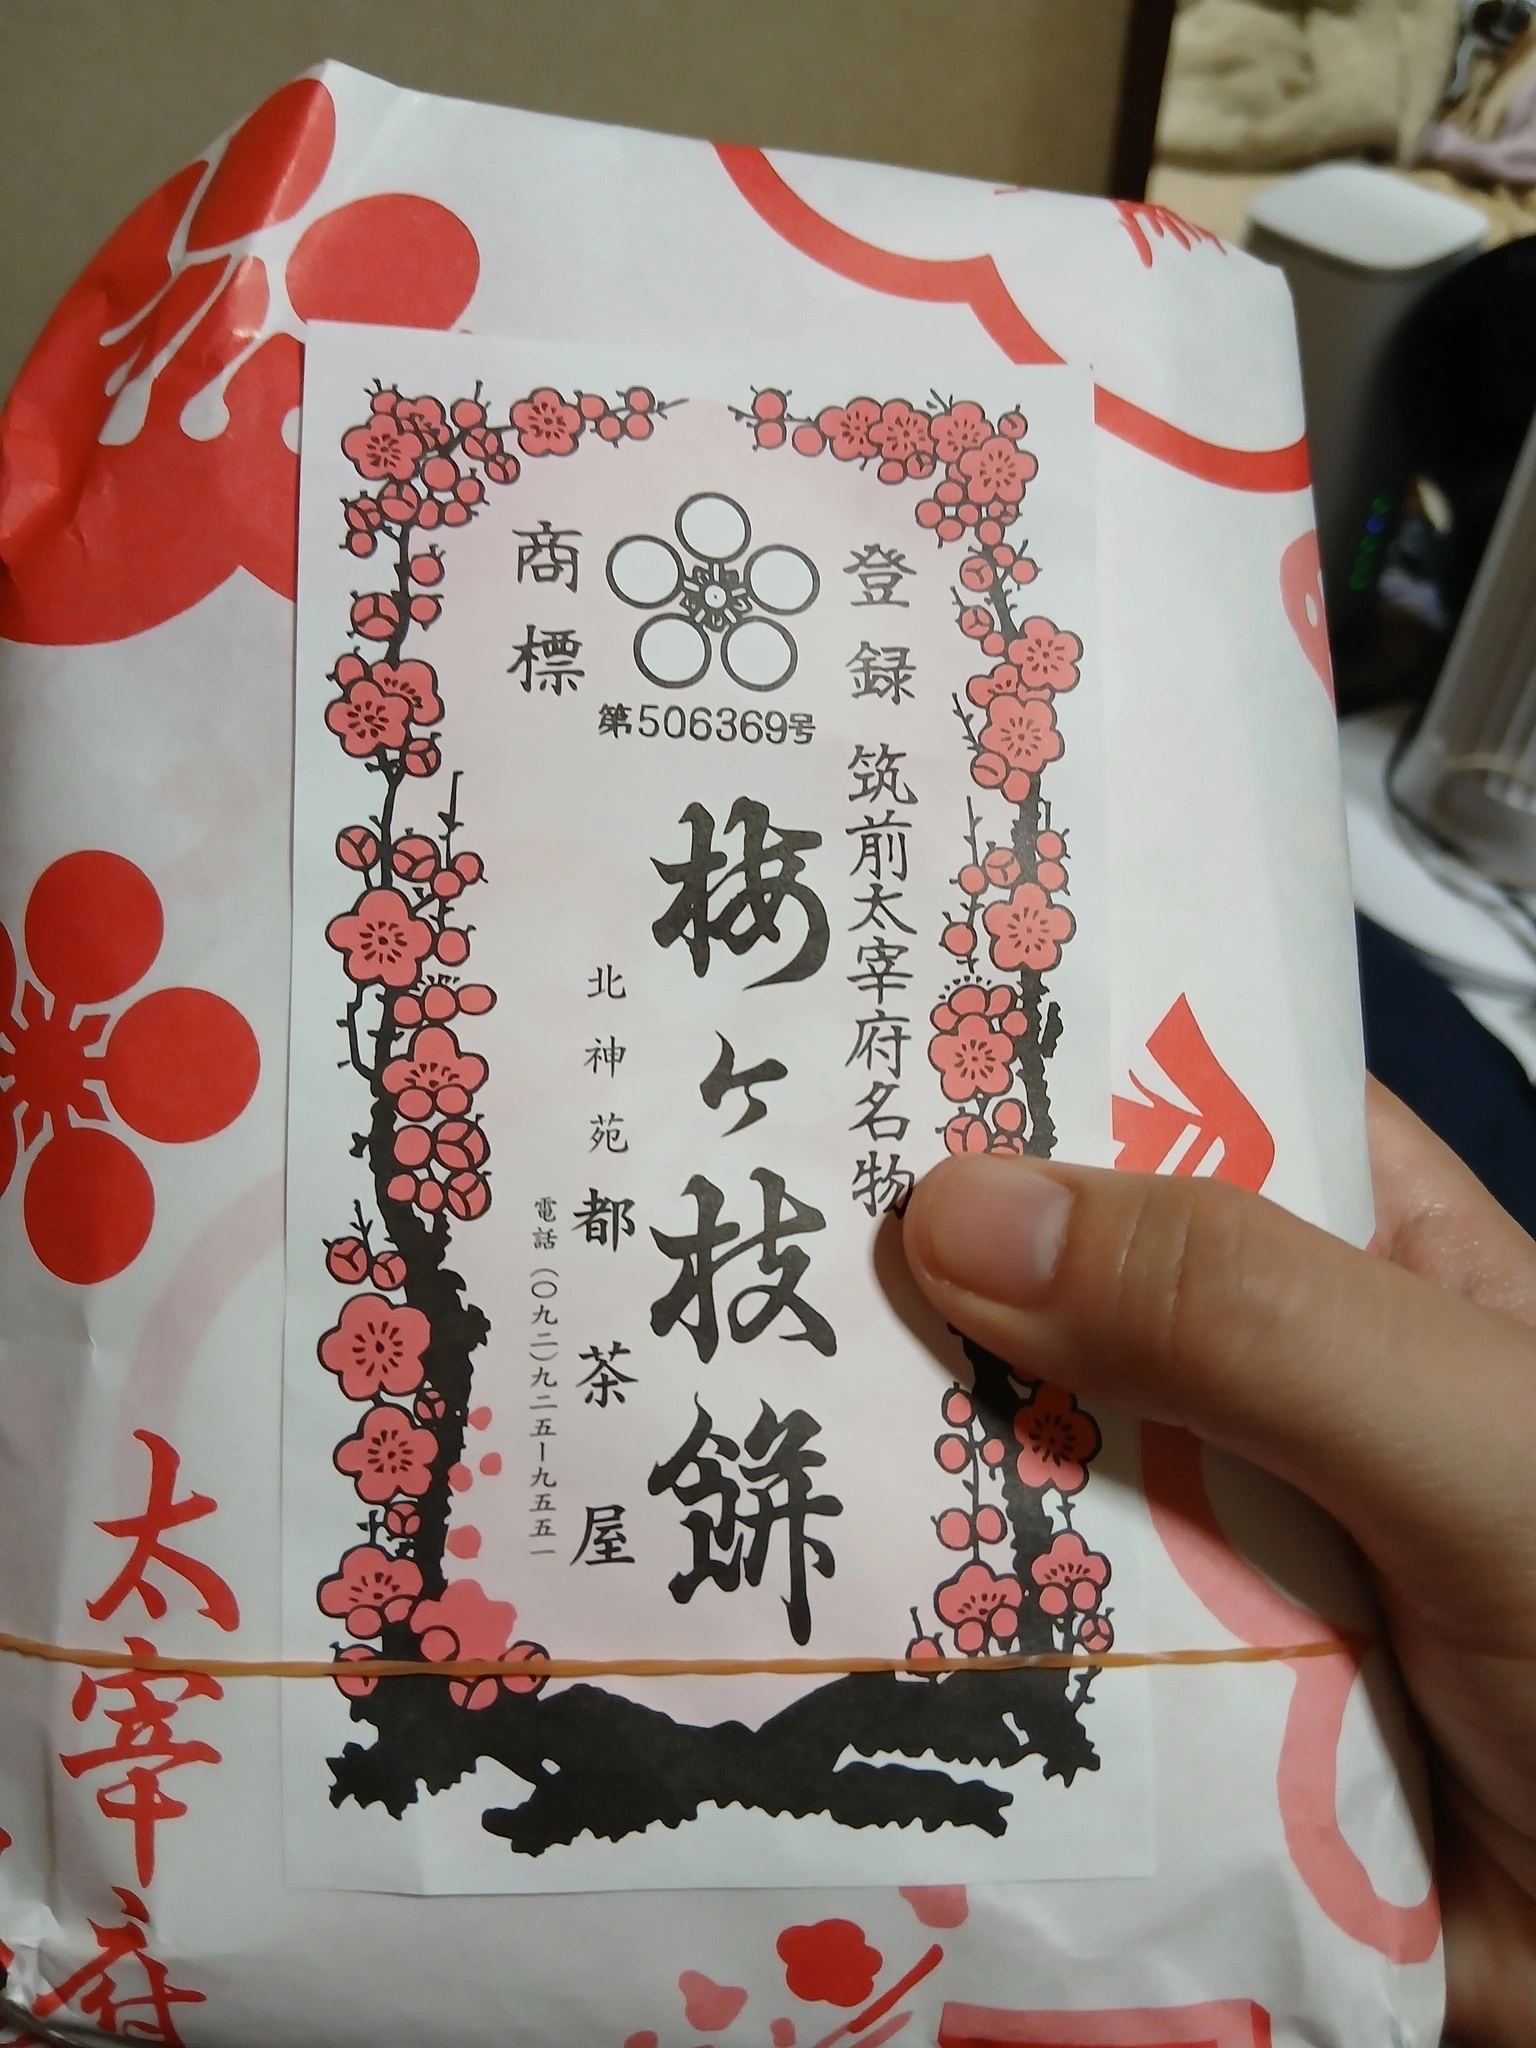 登録
商標
第506369号
筑前太宰府名物
梅ヶ枝餅
北神苑 都茶屋
電話(〇九二)九二五ー九五五一
太宰府